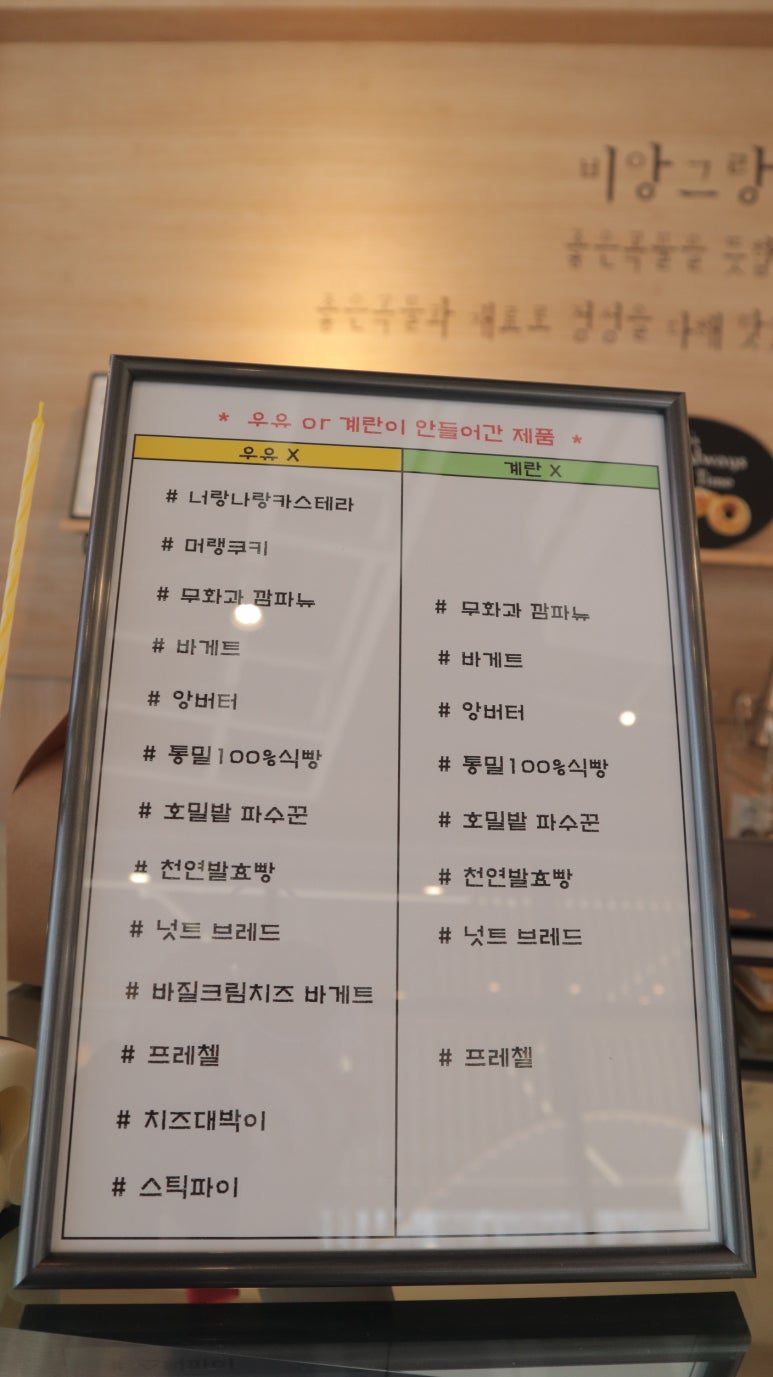 비앙그랑
좋은곡물을 뜻
좋은곡물과 새료로 정성을 다해 맛
* 우유 or 계란이 안들어간 제품 *
우유 X
계란 X
# 너랑나랑카스테라
# 머랭쿠키
# 무화과 깜파뉴
# 무화과 깜파뉴
# 바게트
# 바게트
# 앙버터
# 앙버터
# 통밀100%식빵
# 통밀100%식빵
# 호밀밭 파수꾼
# 호밀밭 파수꾼
# 천연발효빵
# 천연발효빵
# 넛트 브레드
# 넛트 브레드
# 바질크림치즈 바게트
# 프레첼
# 프레첼
# 치즈대박이
# 스틱파이
Always
Time